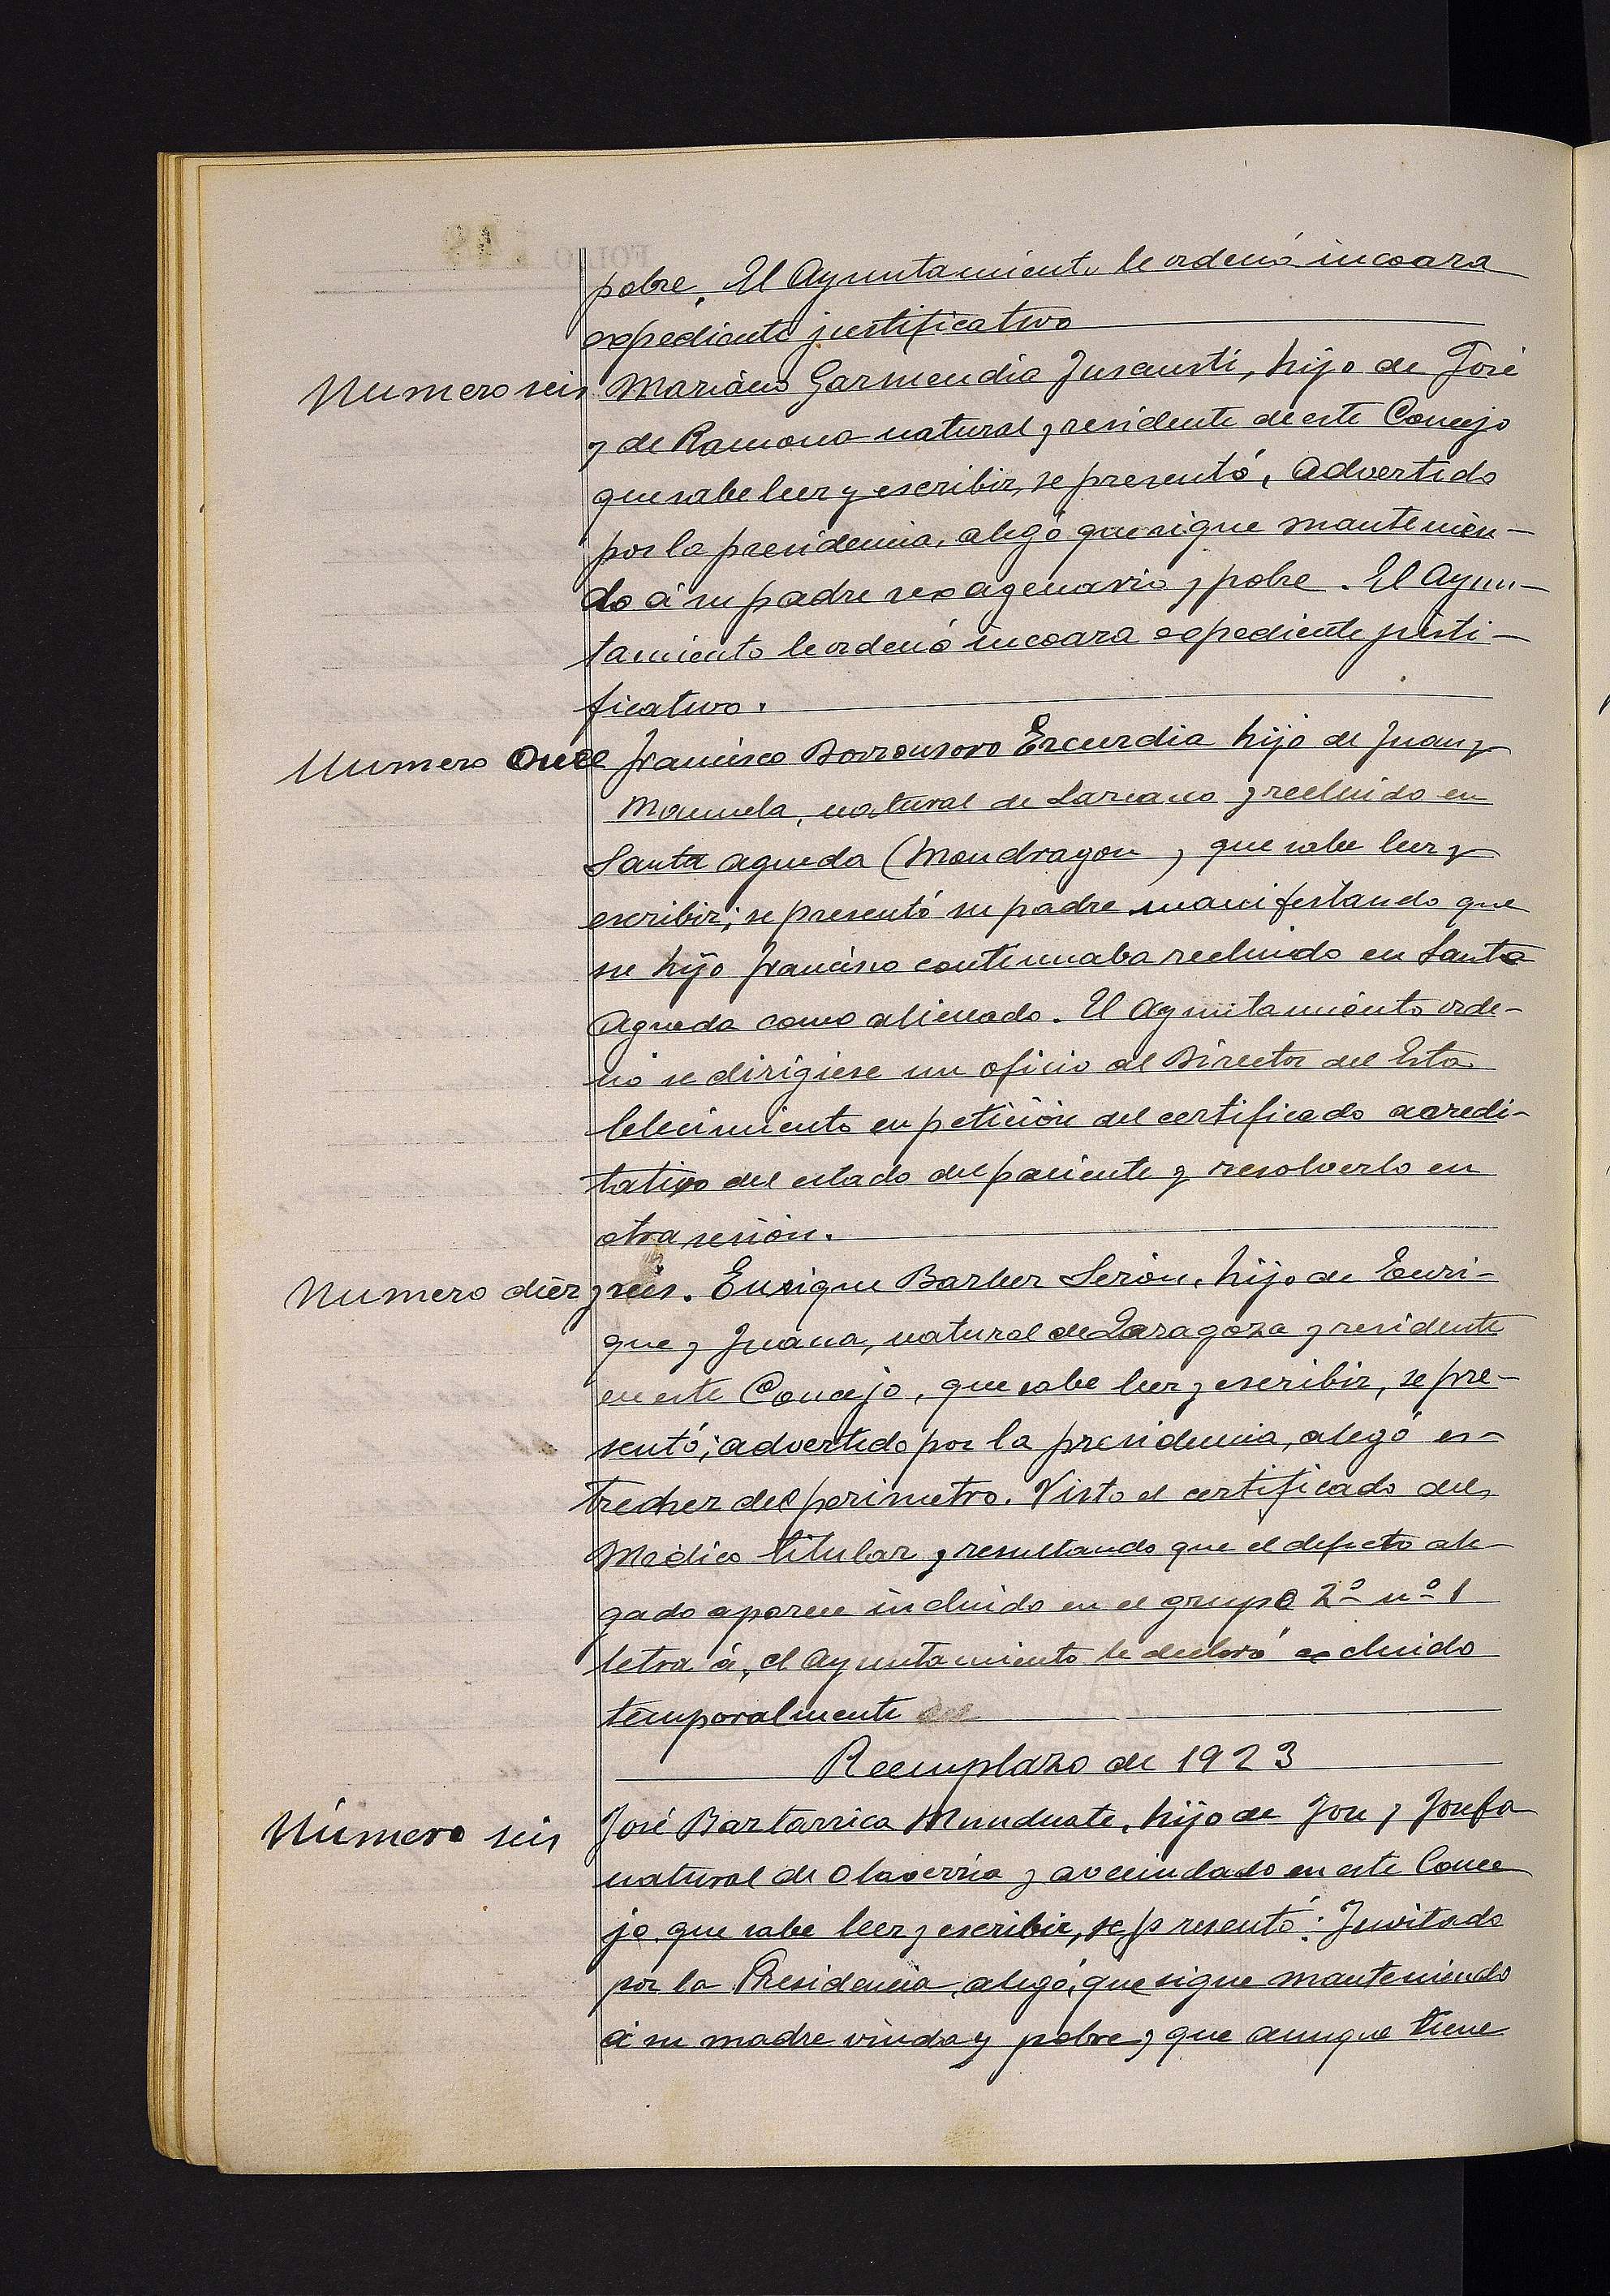 pobre. El Ayuntamiento le ordenó incoara
expediente justificativo
Numero seis Mariano Garmendia Insausti, hijo de José
y de Ramona natural y residente de este Concejo
que sabe leer y escribir, se presentó, Advertido
por la presidencia, alegó que sigue mantenien-
do á su padre sexagenario y pobre. El Ayun-
tamiento le ordenó incoara expediente justi-
ficativo.
Numero Once Francisco Borronsoro Ezcurdia hijo de Juan y
Manuela, natural de Lazcano y recluido en
Santa agueda (Mondragon, que sabe leer y
escribir; se presentó su padre manifestando que
su hijo Francisco continuaba recluido en Santa
Agueda como alienado. El Ayuntamiento orde-
nó se dirigiese un oficio al Director del Esta
blecimiento en petición del certificado acredi-
tativo del estado del paciente y resolverlo en
otra sesión.
Numero diez y seis. Enrique Barber Serón, hijo de Enri-
que y Juana, natural de Zaragoza y residente
en este Concejo, que sabe leer y escribir, se pre-
sentó; advertido por la presidencia, alegó es-
trechez del perimetro. Visto el certificado del
Médico titular y resultando que el defecto ale-
gado aparece incluido en el grupo 2º nº 1
letra á, el Ayuntamiento le declaró excluido
temporalmente
Reemplazo de 1923
Número seis José Baztarrica Munduate, hijo de José y Josefa
natural de Olaverria y avecindado en este Conce
jo que sabe leer y escribir, se presentó: Invitado
por la Presidencia, alegó, que sigue manteniendo
á su madre viuda y pobre, que aunque tiene